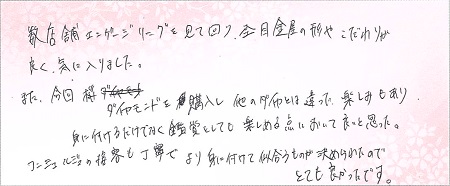 数店舗エンゲージリングを見て回り、杢目金屋の形やこだわりが
良く、気に入りました。
また、今回 桜ダイヤモンドを購入し 他のダイヤとは違った楽しみもあり
身に付けるだけでなく鑑賞としても楽しめる点において良いと思った。
コンシェルジュの接客も丁寧で より身に付けて似合うものが決められたので
とても良かったです。